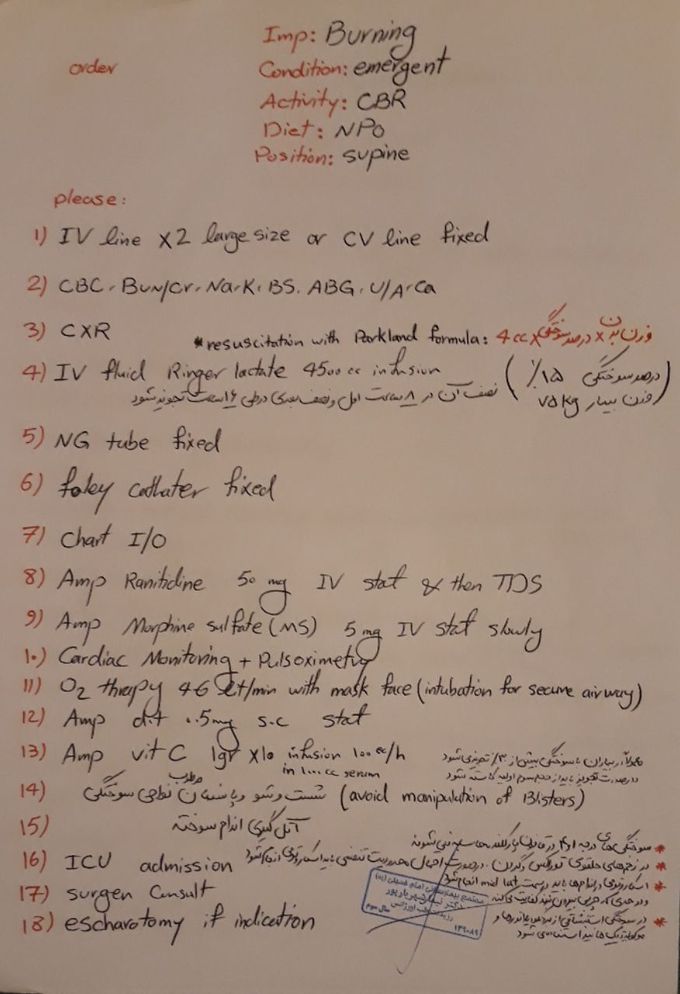 Imp: Burning
order
Condition: emergent
Activity: CBR
Diet: NPO
Position: supine
please:
1) IV line x2 large size or CV line fixed
2) CBC, Bun/Cr, Na,K, BS, ABG, U/A, Ca
3) CXR
*resuscitation with Parkland formula: 4cc x درصد سوختگی x وزن بدن
4) IV fluid Ringer lactate 4500 cc infusion
(درصد سوختگی ۱۵٪
وزن بیمار ۷۵ kg)
نصف آن در ۸ ساعت اول و نصف بعدی در طی ۱۶ ساعت تجویز شود
5) NG tube fixed
6) foley cathater fixed
7) Chart I/O
8) Amp Ranitidine 50 mg IV stat & then TDS
9) Amp Morphine sulfate (MS) 5 mg IV stat slowly
10) Cardiac Monitoring + Pulsoximetry
11) O2 thrapy 4-6 Lit/min with mask face (intubation for secure airway)
12) Amp 0.5mg s.c stat
13) Amp vit C 1gr x10 infusion 100 cc/h
in 1000 cc serum
در بیماران با سوختگی بیش از ۳۰٪ تجویز شود
در صورت تجویز باید از حجم سرم اولیه کاسته شود
14) شست و شو و پانسمان مرطب نواحی سوختگی (avoid manipulation of Blisters)
15) آتل گیری اندام سوخته
* سوختگی های درجه ۱ در فرمول پارکلند محاسبه نمی شوند
16) ICU admission
* در زخم های حلقوی توراکس و گردن، در صورت احتمال محدودیت تنفسی باید اسکاروتومی انجام شود
17) surgen Consult
* اسکاروتومی در اندام ها باید در سمت lat و med انجام شود
18) escharotomy if indication
* در سوختگی استنشاقی از